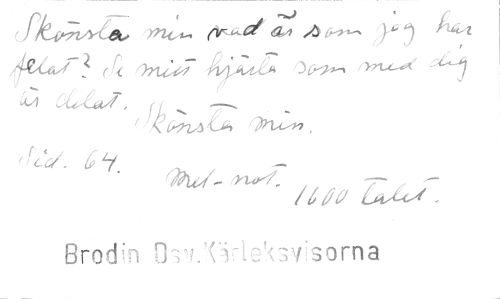 Skönsta min vad är som jag har
felat? Se mitt hjärta som med dig
är delat.
Skönsta min.
Sid. 64.
Mel-not.
1600 talet.
Brodin Dsv.Kärleksvisorna